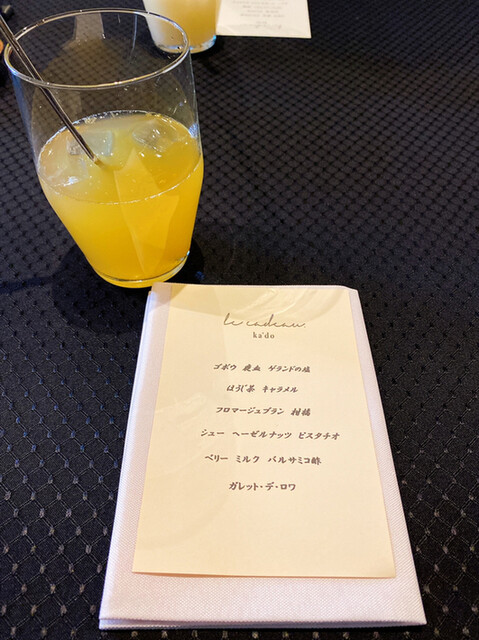 le cadeau.
ka'do
ゴボウ 鹿血 ゲランドの塩
ほうじ茶 キャラメル
フロマージュブラン 柑橘
シュー ヘーゼルナッツ ピスタチオ
ベリー ミルク バルサミコ酢
ガレット・デ・ロワ